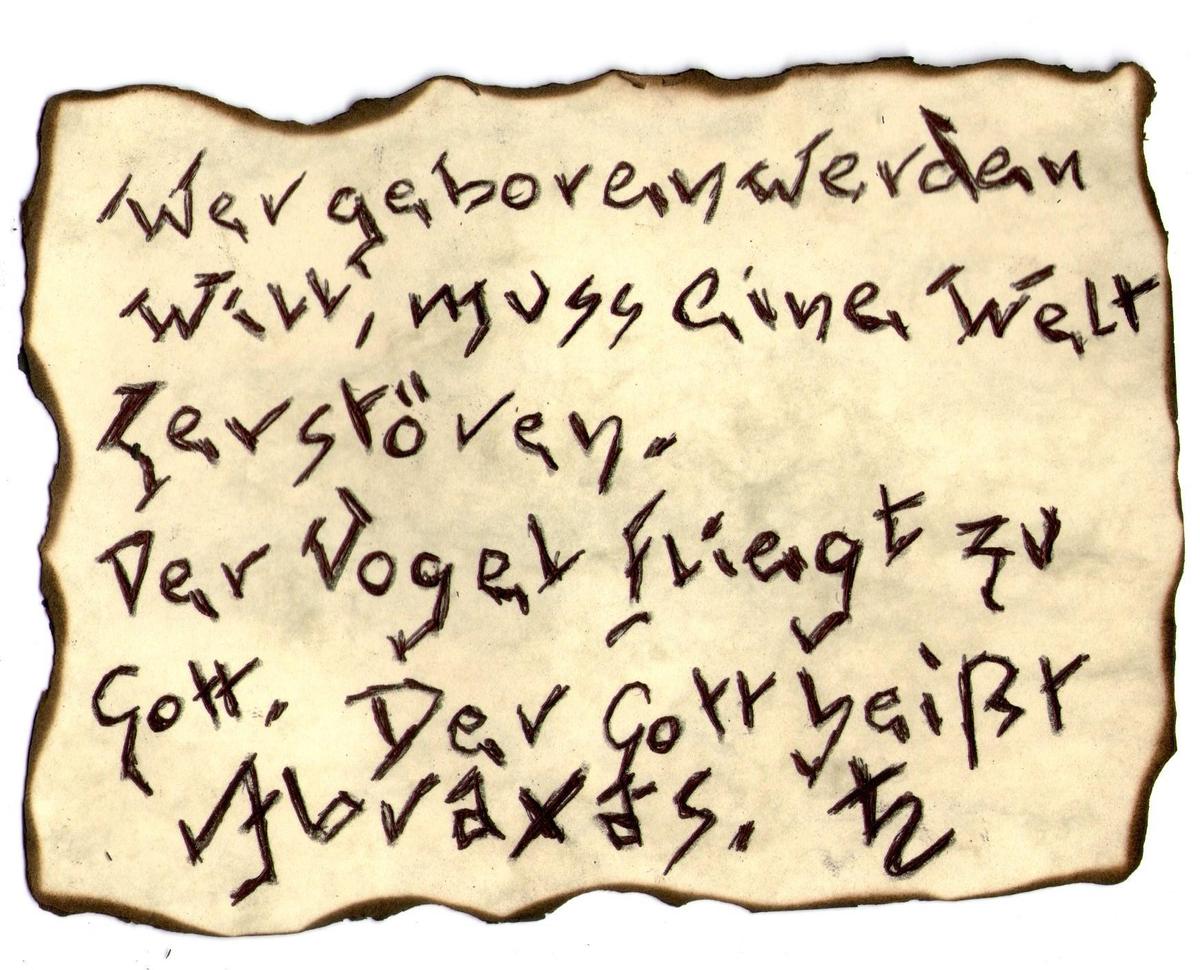 Wer geboren werden
will, muss eine Welt
zerstören.
Der Vogel fliegt zu
Gott. Der Gott heißt
Abraxas.